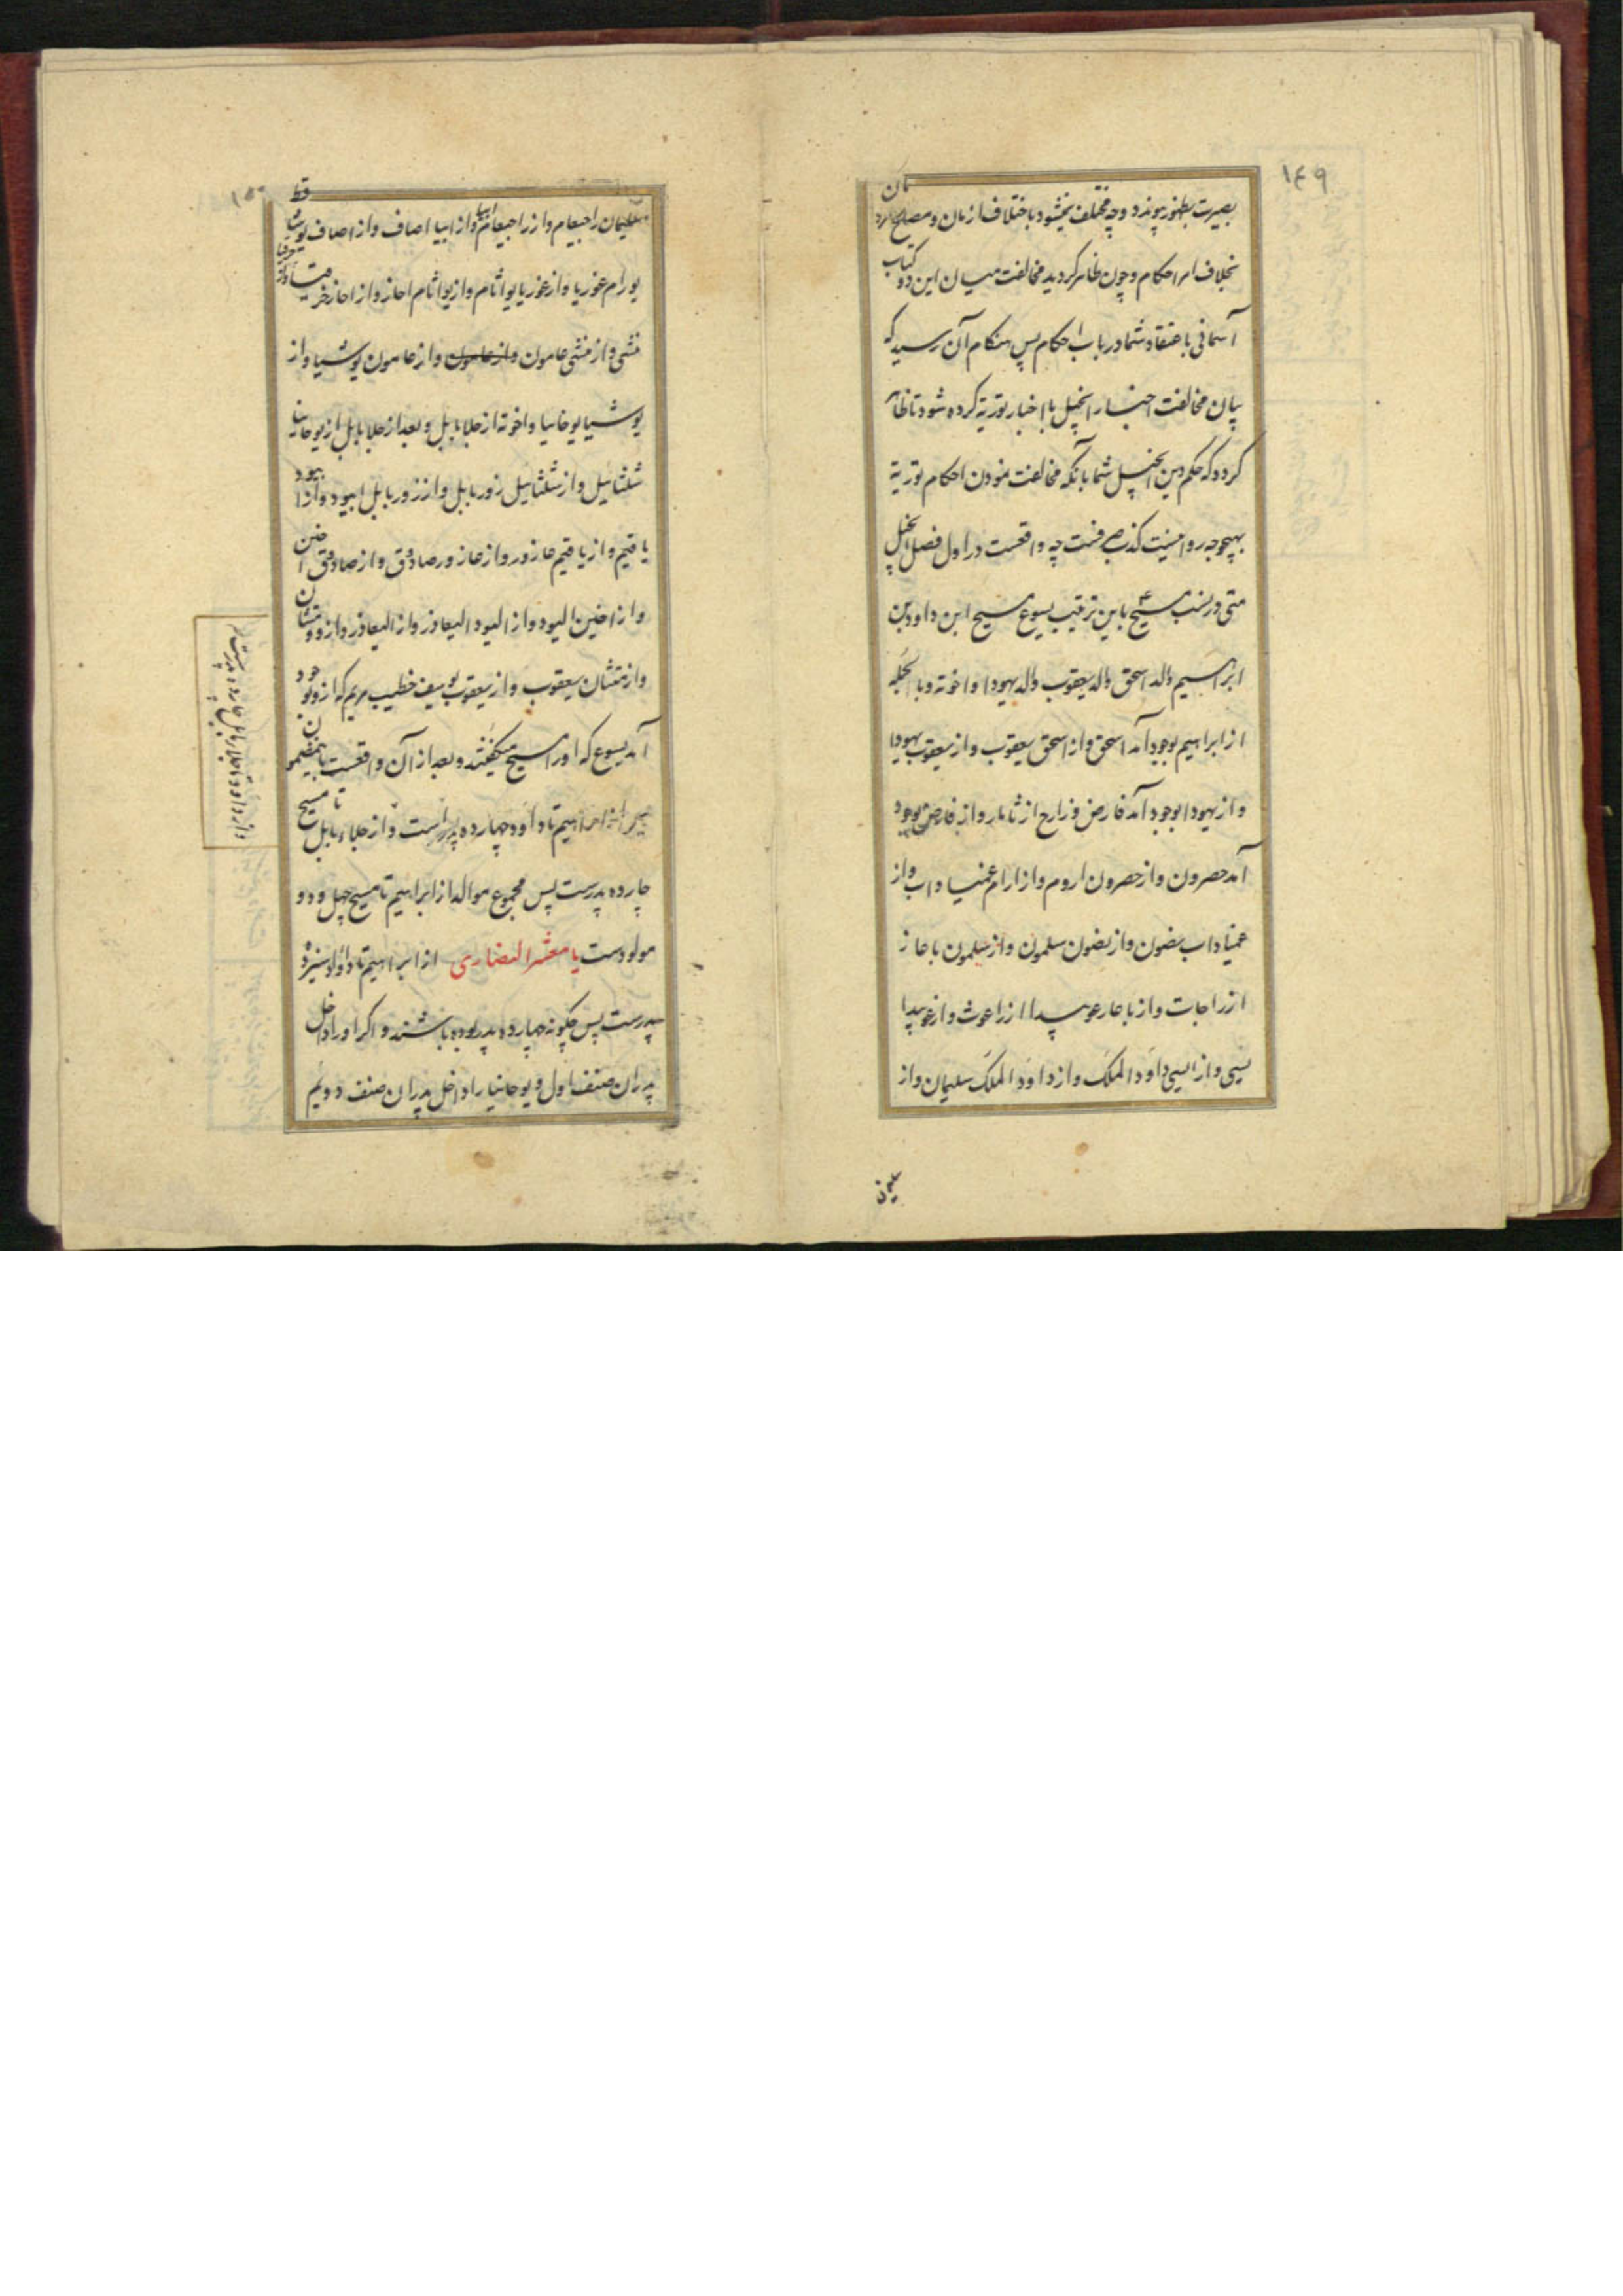 ۱۴۹
بصیرت بظهور پیوندد و چه مختلف میشود باختلاف ازمان و مصلح
بخلاف امر احکام و چون ظاهر کردید مخالفت میان این دو کتاب
آسمانی باعتقاد شما در باب احکام پس هنکام آن رسید که
بیان مخالفت اخبار انجیل با اخبار توریة کرده شود تا ظاهر
کردد که حکم دین انجیل شما بانکه مخالفت نمودن احکام توریة
بهیچوجه روا نیست کذب صرفست چه واقعست در اول فصل انجیل
متی در نسب مسیح باین ترتیب یسوع مسیح ابن داود بن
ابراهیم والد اسحق والد یعقوب والد یهودا و اخوته و بالجمله
از ابراهیم بوجود آمد اسحق و از اسحق یعقوب و از یعقوب یهودا
و از یهودا بوجود آمد فارض و زارح از ثامار و از فارض بوجود
آمد حصرون و از حصرون اروم و از ارام عمنیاداب و از
عمیناداب نصون و از نصون سلمون و از سلمون باعاز
از راجات و از باعاز عوبیدا از راعوث و از عوبیدا
یسی و از ایسی داود الملک و از داود الملک سلیمان و از
۱۵۰
سلیمان راجیعام و از راجیعام ابیا و از ابیا اصاف و از اصاف
یورام غوزیا و از غوزیا یواثام و از یواثام احاز و از احاز
منشی و از منشی عامون و از عامون و از عامون یوشیا و از
یوشیا یوخانیا و اخوته از جلا بابل و بعد از جلا بابل از یوخانیا
شلثائیل و از شلثائیل زوربابل و از زوربابل ابیود و از ابیود
یاقیم و از یاقیم عازور و از عازور صادوق و از صادوق اخین
و از اخین الیود و از الیود الیعاذر و از الیعاذر و از و متثان
و از متثان یعقوب و از یعقوب یوسف خطیب مریم که از و بوجود
آمد یسوع که او را مسیح میکفتند و بعد از آن واقعست باینمضمون
ابراهیم تا داود چهارده پدر است و از جلاء بابل تا مسیح
چارده پدرست پس مجموع موالد از ابراهیم تا مسیح چهل و دو
مولودست یا معشر النصاری از ابراهیم تا داود سیزده
پدرست پس چکونه چهارده پدر بوده باشند و اکر او را داخل
پدران صنف اول و یوحانیا را داخل پدران صنف دویم
و از داود تا جلاء بابل چارده پدرست